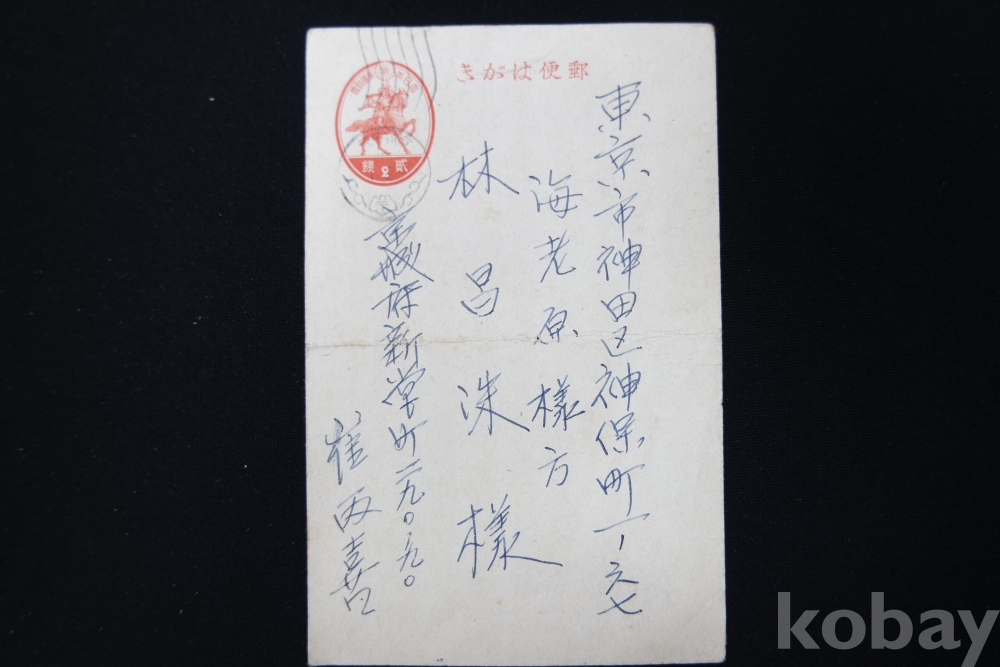 きがは便郵
錢2貳
東京市神田区神保町一ノ六七
海老原様方
林昌洙様
京城府新堂町二九〇ノ九〇
崔丙喜
kobay